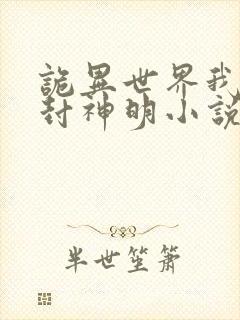 詭異世界我
封神明小說
半世笙簫